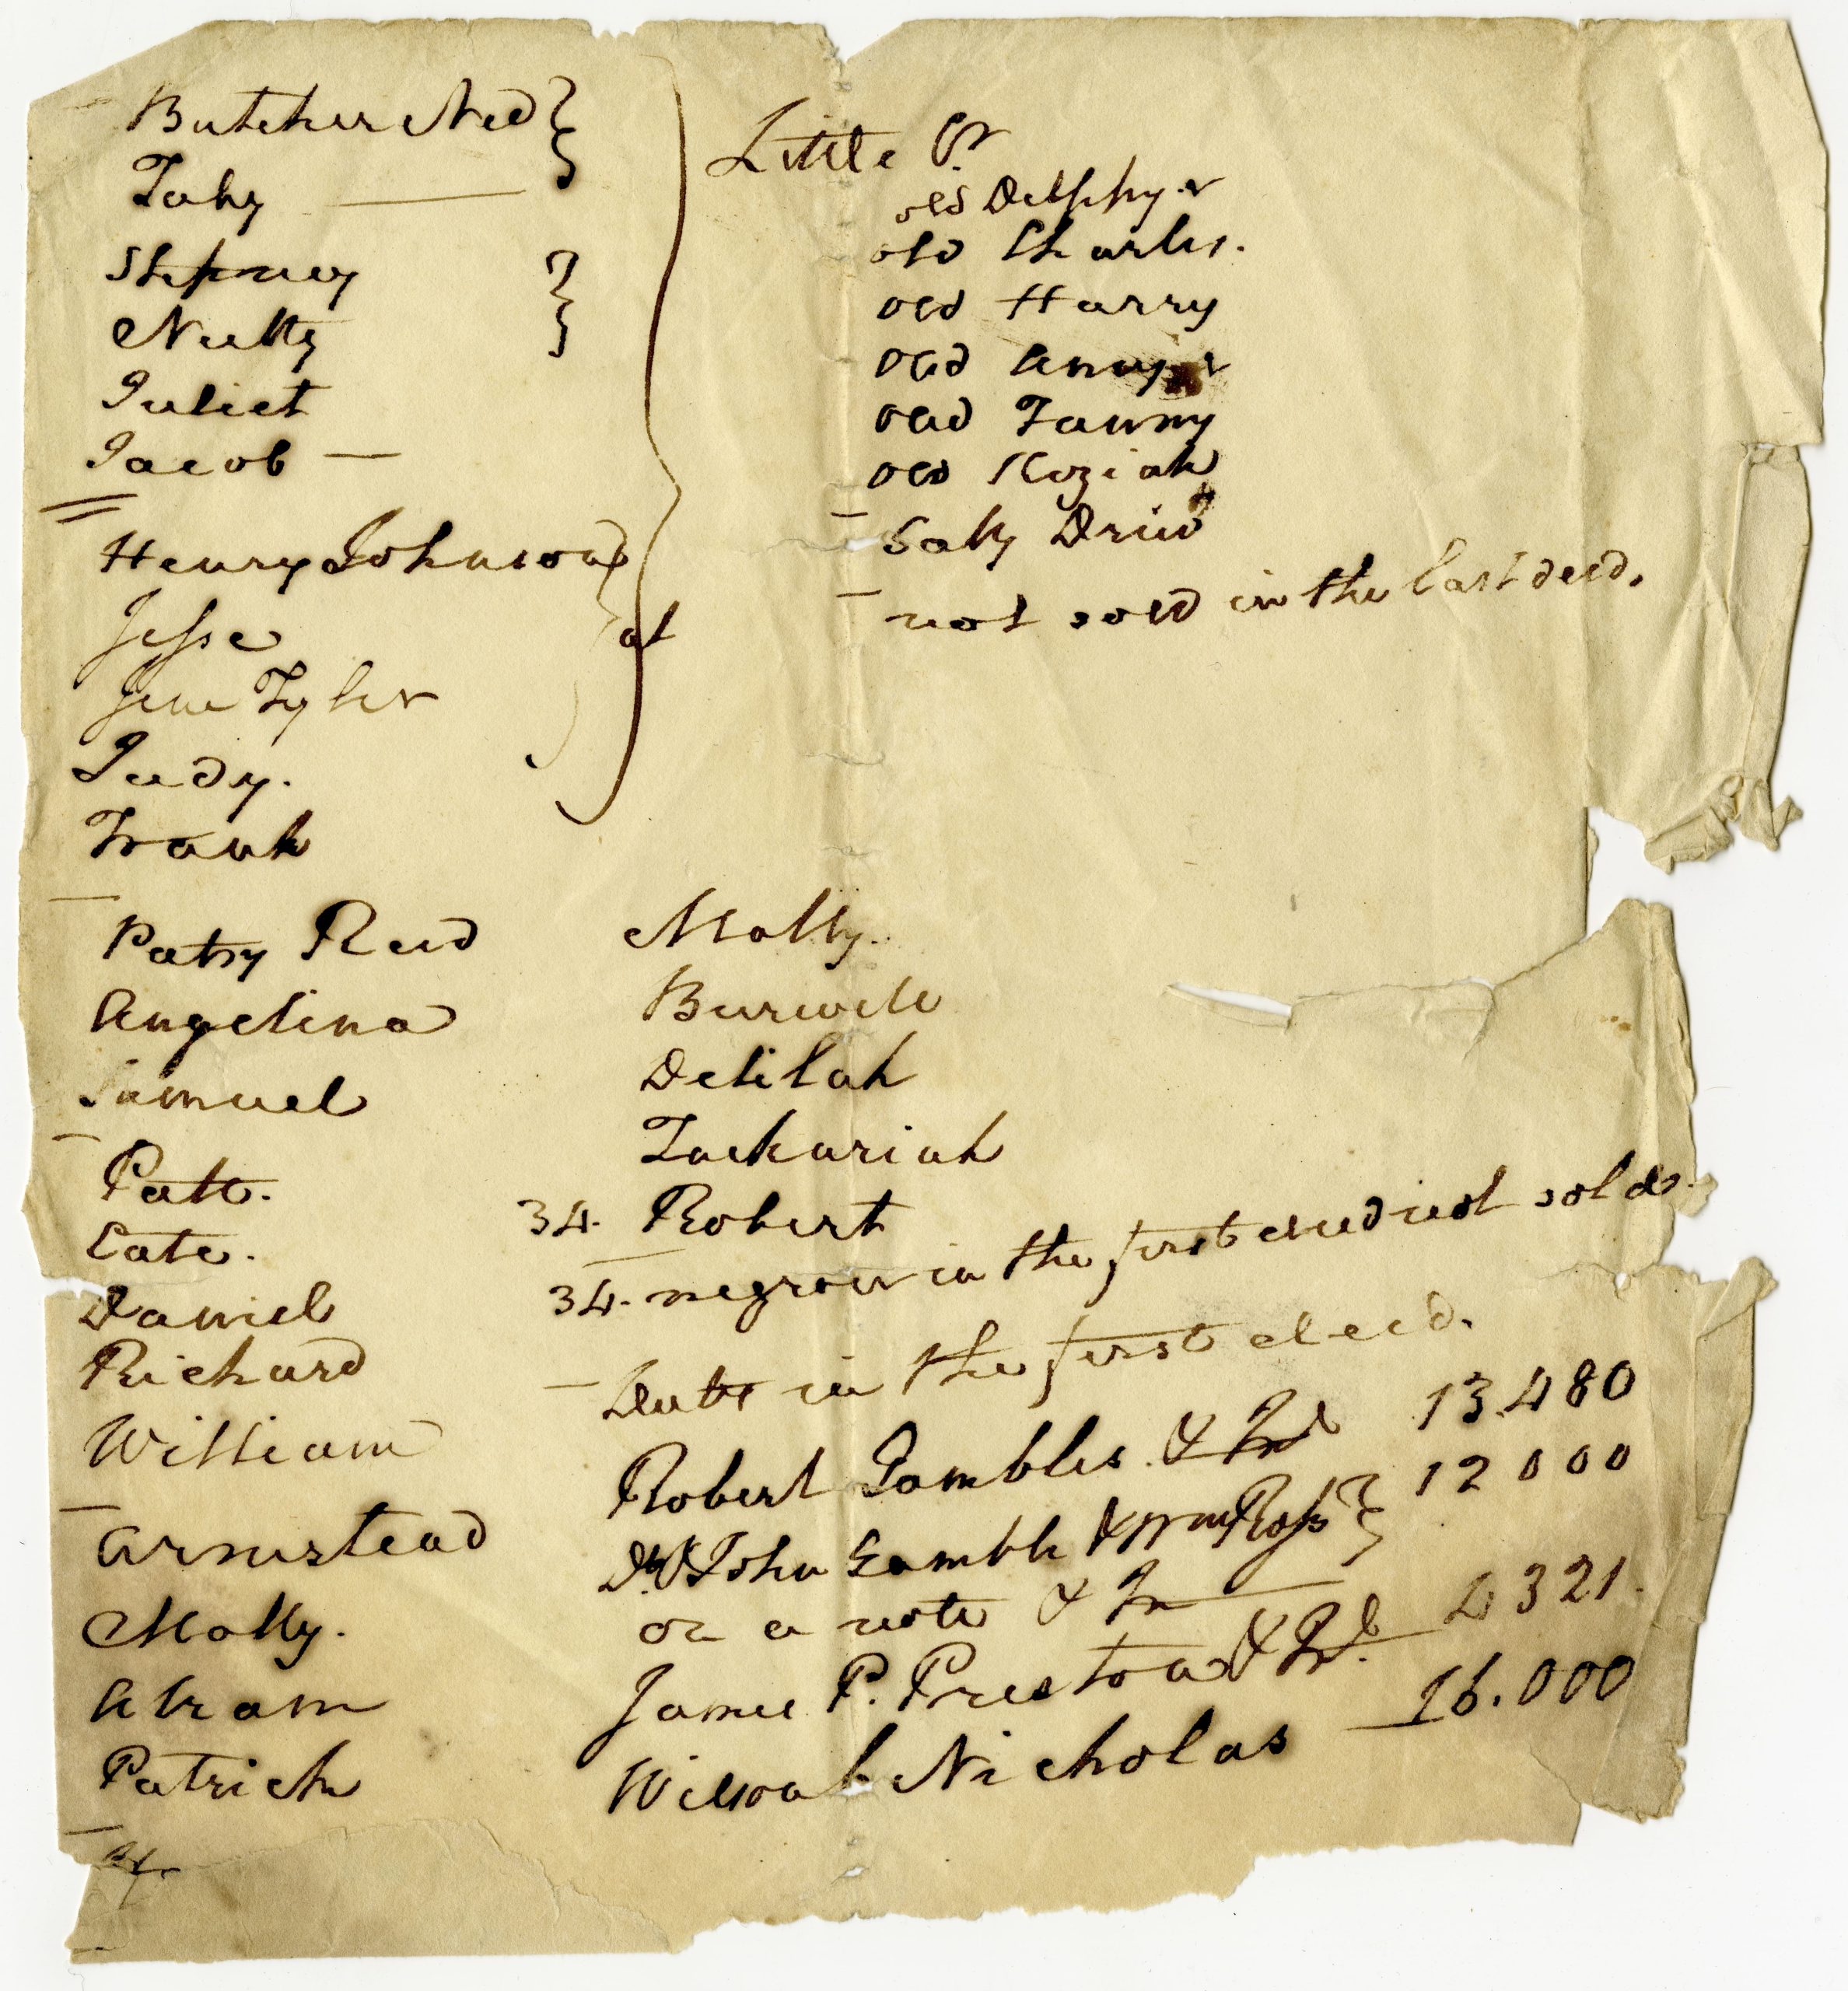 Butcher Ned
Taby
Stepney
Nutty
Juliet
Jacob —
Henry Johnson
Jesse
Jene Tyler
Judy.
Frank
Patsy Reid
Angelina
Samuel
Patt.
Cate.
Daniel
Richard
William
Armistead
Molly.
Abram
Patrick
Little
old Delphy
old Charles.
old Harry
old Amy
old Fanny
old Koziah
Sally Drew
not sold in the last deed.
Molly.
Burwell
Delilah
Zachariah
34. Robert
34. negroes in the first deed not sold.
Debts in the first deed.
Robert Gambles & Int 13.480
John Gamble & Wm Ross 12000
on a note & In
James P. Preston & Int. 4321.
Wilson C Nicholas 16.000